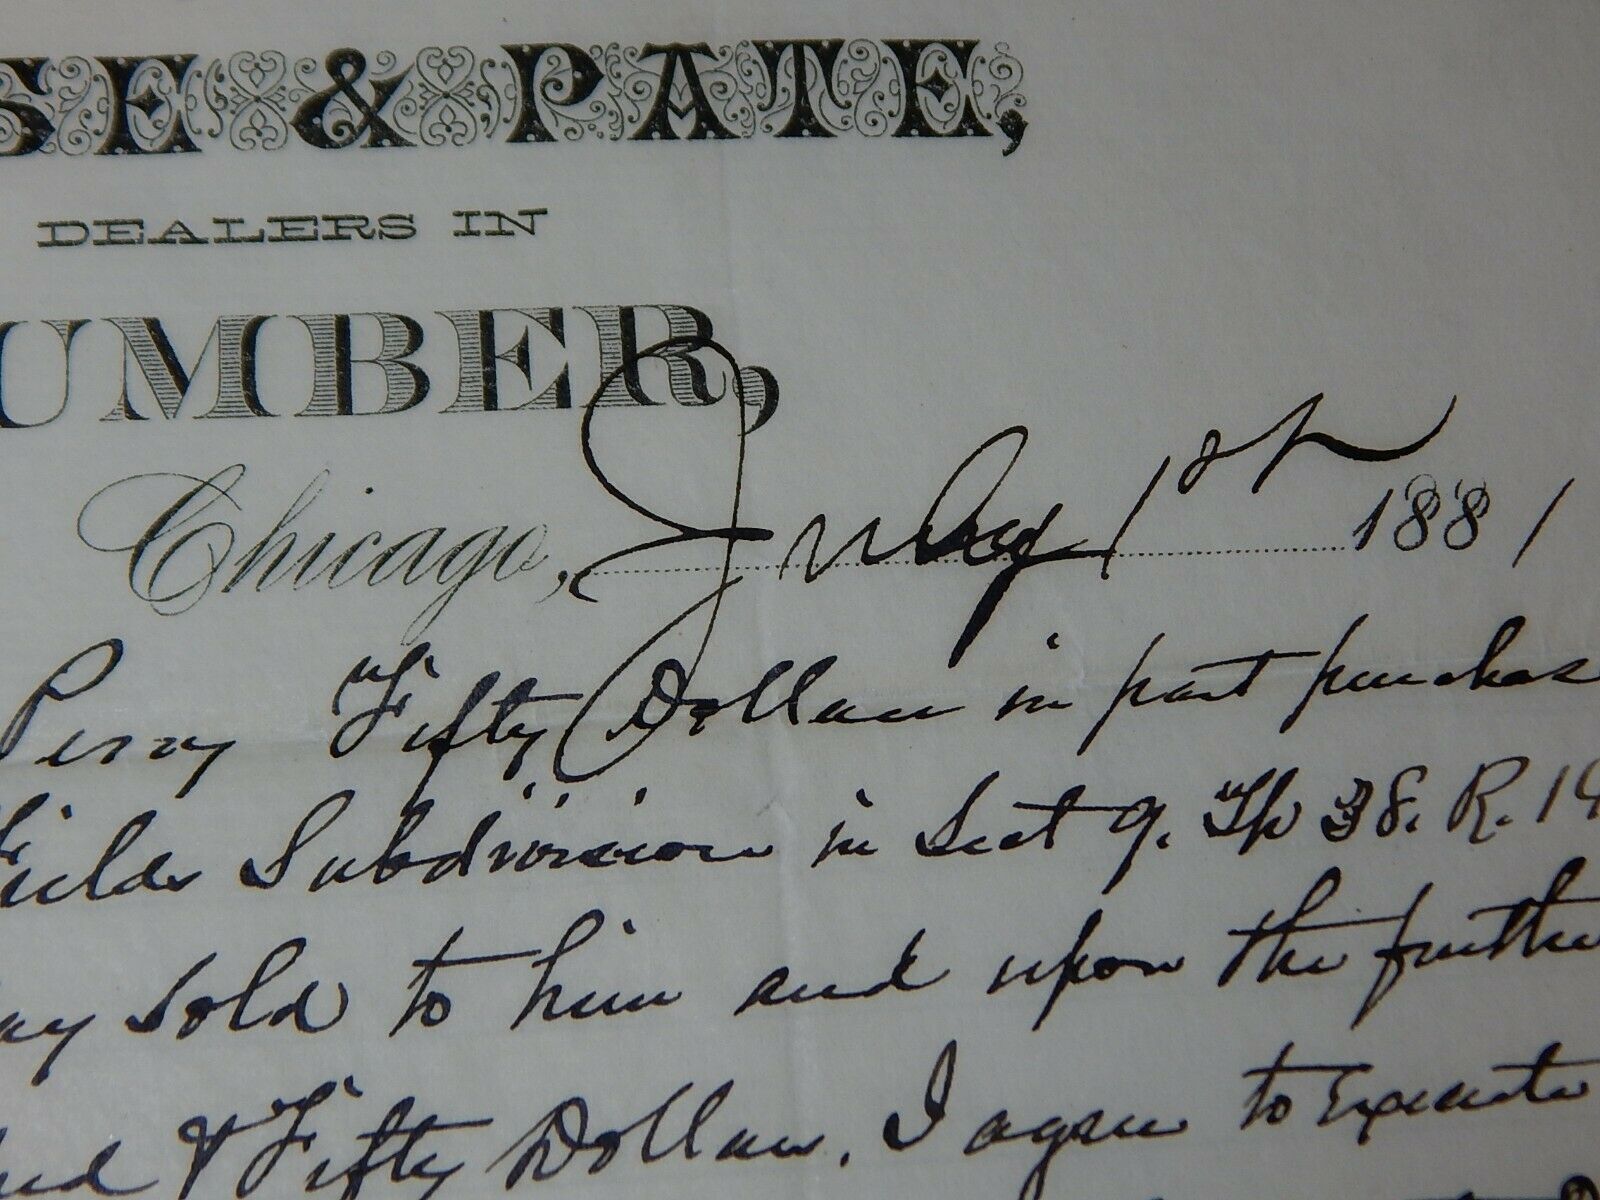 SE & PATE,
DEALERS IN
UMBER,
Chicago, July 1st 1881
Perry Fifty Dollars in part purchase
Fields Subdivision in Sect 9. Tp 38. R. 14
ay sold to him and upon the further
& Fifty Dollars. I agree to Execute